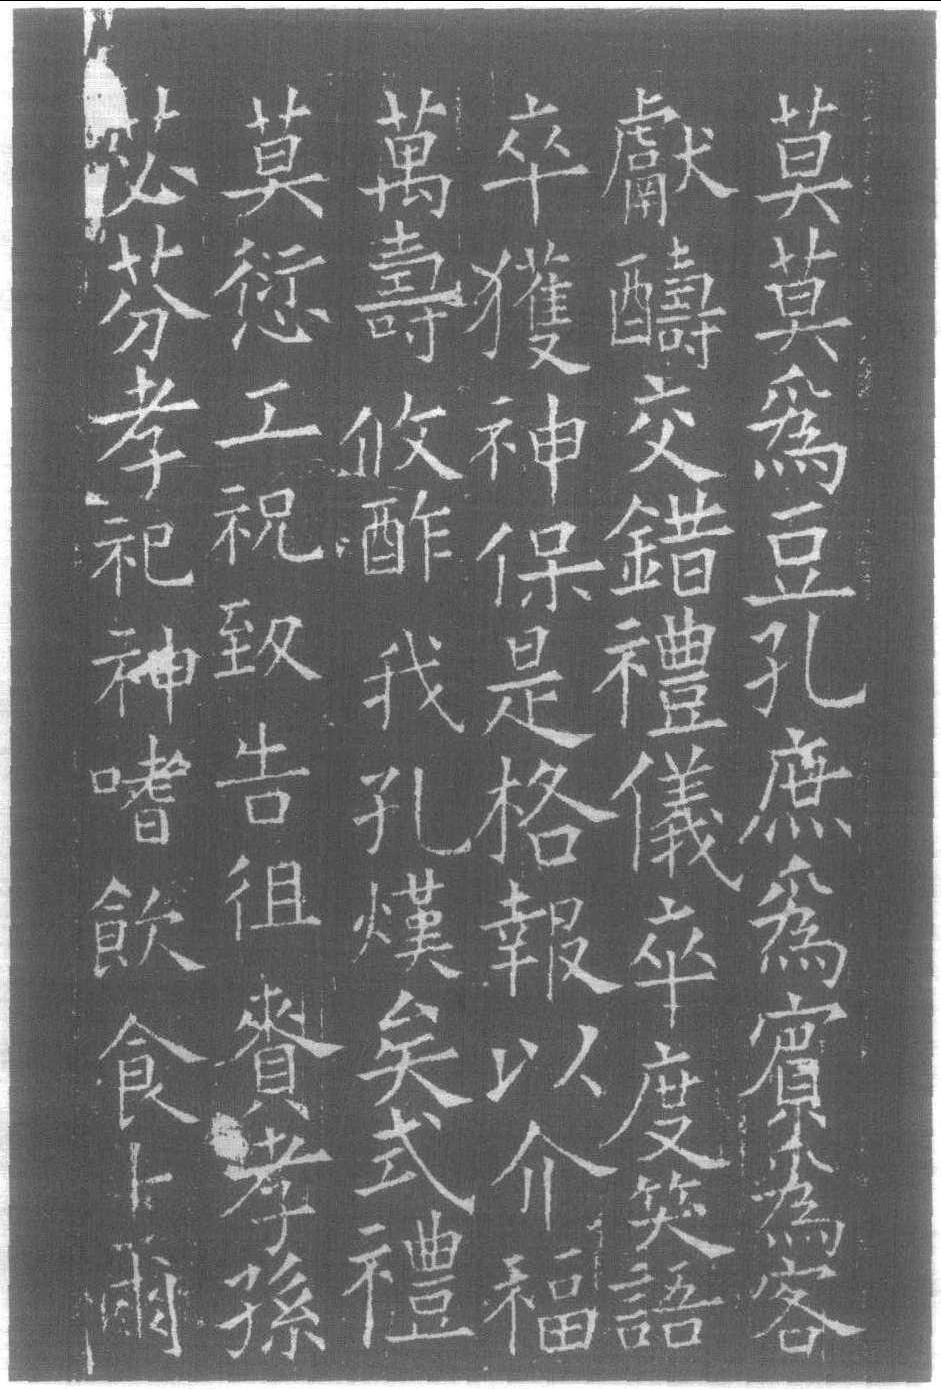 莫莫爲豆孔庶爲賓爲客
獻醻交錯禮儀卒度笑語
卒獲神保是格報以介福
萬壽攸酢我孔熯矣式禮
莫愆工祝致告徂賚孝孫
苾芬孝祀神嗜飲食卜爾